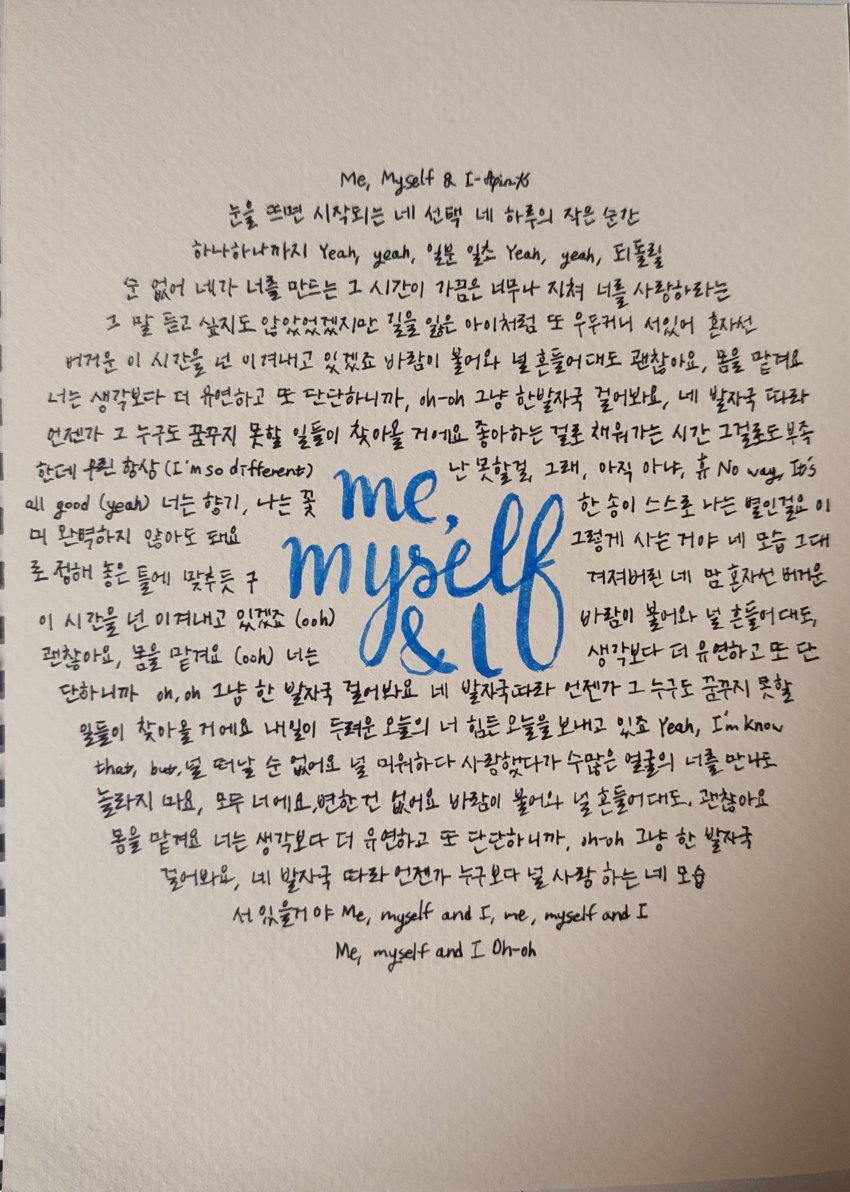 Me, Myself & I-Apink
눈을 뜨면 시작되는 네 선택 네 하루의 작은 순간
하나하나까지 Yeah, yeah, 일분 일초 Yeah, yeah, 되돌릴
순 없어 네가 너를 만드는 그 시간이 가끔은 너무나 지쳐 너를 사랑하라는
그 말 듣고 싶지도 않았었겠지만 길을 잃은 아이처럼 또 우두커니 서있어 혼자선
버거운 이 시간을 넌 이겨내고 있겠죠 바람이 불어와 널 흔들어대도 괜찮아요, 몸을 맡겨요
너는 생각보다 더 유연하고 또 단단하니까, oh-oh 그냥 한발자국 걸어봐요, 네 발자국 따라
언젠가 그 누구도 꿈꾸지 못할 일들이 찾아올 거에요 좋아하는 걸로 채워가는 시간 그걸로도 부족
한데 우린 항상 (I'm so different) 난 못할걸, 그래, 아직 아냐, 휴 No way, It's
all good (yeah) 너는 향기, 나는 꽃 한 송이 스스로 나는 별인걸요 이
미 완벽하지 않아도 돼요 그렇게 사는 거야 네 모습 그대
로 정해 놓은 틀에 맞추듯 구 겨져버린 네 맘 혼자선 버거운
이 시간을 넌 이겨내고 있겠죠 (ooh) 바람이 불어와 널 흔들어대도,
괜찮아요, 몸을 맡겨요 (ooh) 너는 생각보다 더 유연하고 또 단
단하니까 oh, oh 그냥 한 발자국 걸어봐요 네 발자국따라 언젠가 그 누구도 꿈꾸지 못할
일들이 찾아올 거에요 내일이 두려운 오늘의 너 힘든 오늘을 보내고 있죠 Yeah, I'm know
that, but, 널 떠날 순 없어요 널 미워하다 사랑했다가 수많은 얼굴의 너를 만나도
놀라지 마요, 모두 너에요, 변한 건 없어요 바람이 불어와 널 흔들어대도. 괜찮아요
몸을 맡겨요 너는 생각보다 더 유연하고 또 단단하니까, oh-oh 그냥 한 발자국
걸어봐요, 네 발자국 따라 언젠가 누구보다 널 사랑 하는 네 모습
서 있을거야 Me, myself and I, me, myself and I
Me, myself and I Oh-oh
me,
myself
& I